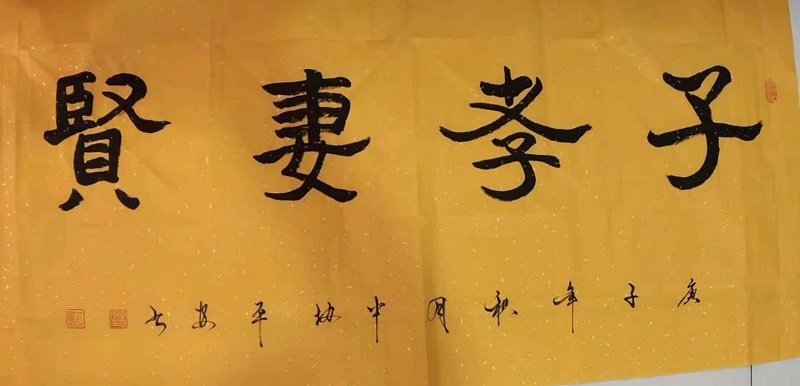 子孝妻賢
庚子年秋月中協平安書